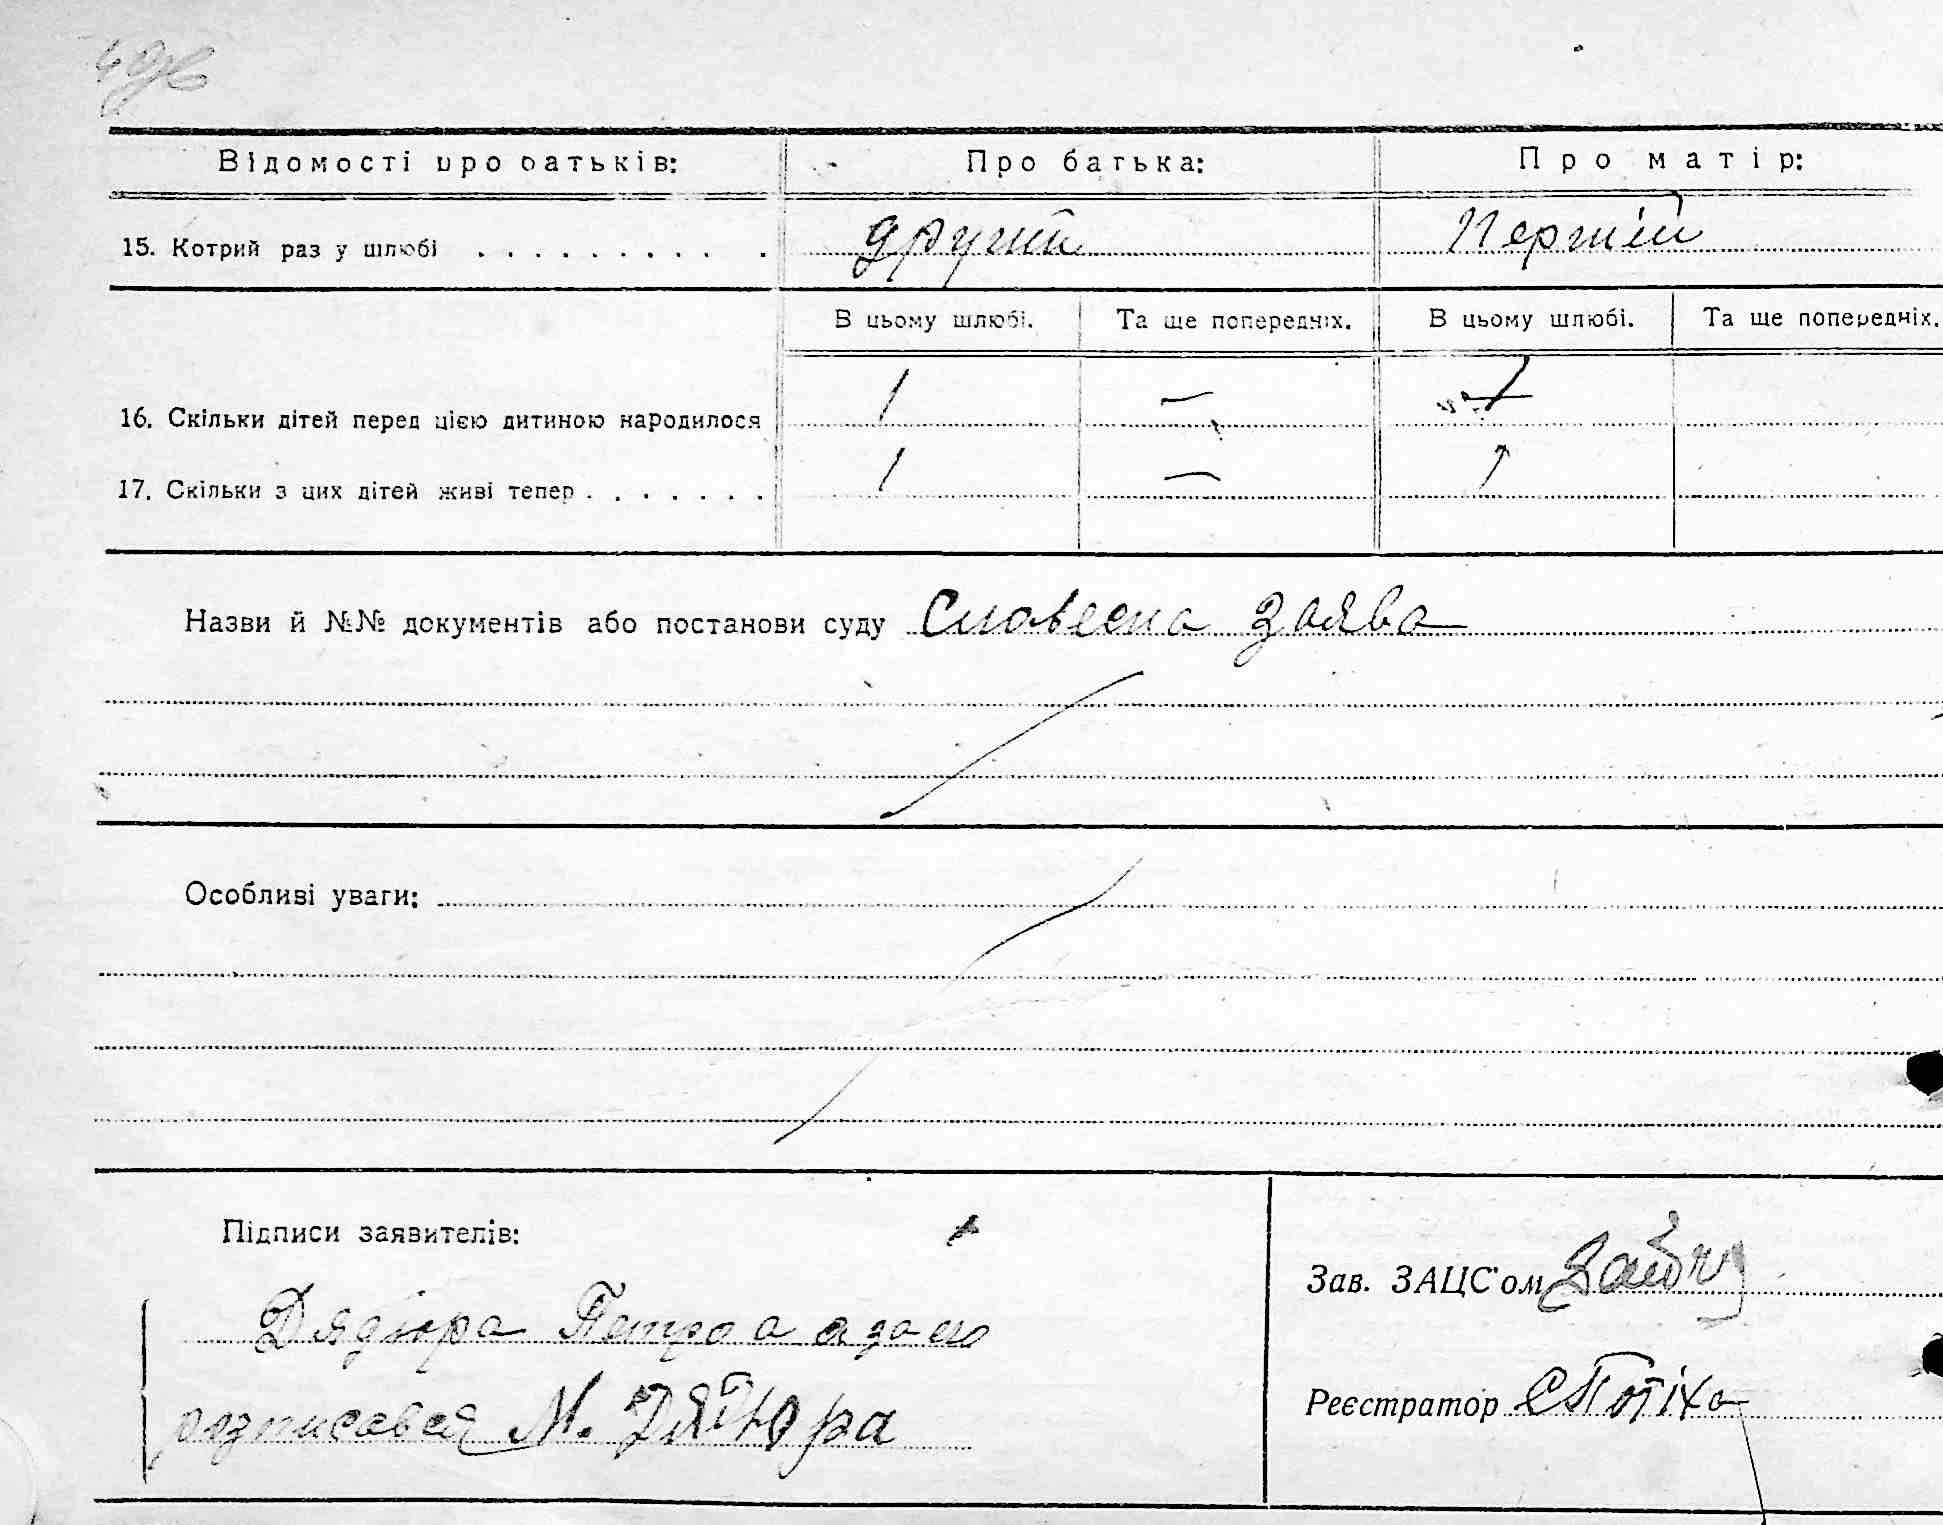 Відомості про батьків: Про батька: Про матір:
15. Котрий раз у шлюбі . . . . . . . . . . другий Перший
В цьому шлюбі. Та ще попередніх. В цьому шлюбі. Та ще попередніх.
16. Скільки дітей перед цією дитиною народилося 1 — 1
17. Скільки з цих дітей живі тепер . . . . . . . 1 — 1
Назви й №№ документів або постанови суду Словесна заява
Особливі уваги:
Підписи заявителів:
Зав. ЗАЦС'ом
Дядюра Петро а за его
розписався М. Дятюра
Реєстратор СПотіха